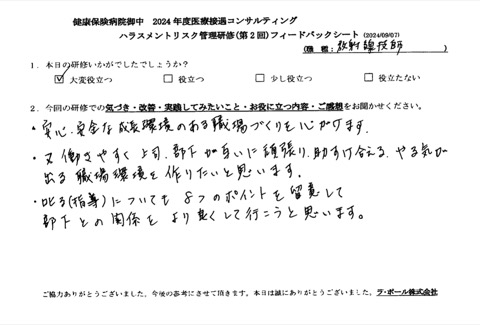 健康保険病院御中　2024年度医療接遇コンサルティング
ハラスメントリスク管理研修(第2回)フィードバックシート (2024/09/07)
(職 種: 放射線技師 )
1．本日の研修いかがでしたでしょうか？
☑ 大変役立つ　□ 役立つ　□ 少し役立つ　□ 役立たない
2．今回の研修での気づき・改善・実践してみたいこと・お役に立つ内容・ご感想をお聞かせください。
・安心、安全な成長環境のある職場づくりを心がけます。
・又働きやすく上司、部下が互いに頑張り、助すけ合える、やる気が
出る職場環境を作りたいと思います。
・叱る(指導)についても 8つのポイントを留意して
部下との関係をより良くして行こうと思います。
ご協力ありがとうございました。今後の参考にさせて頂きます。本日は誠にありがとうございました。ラ・ポール株式会社